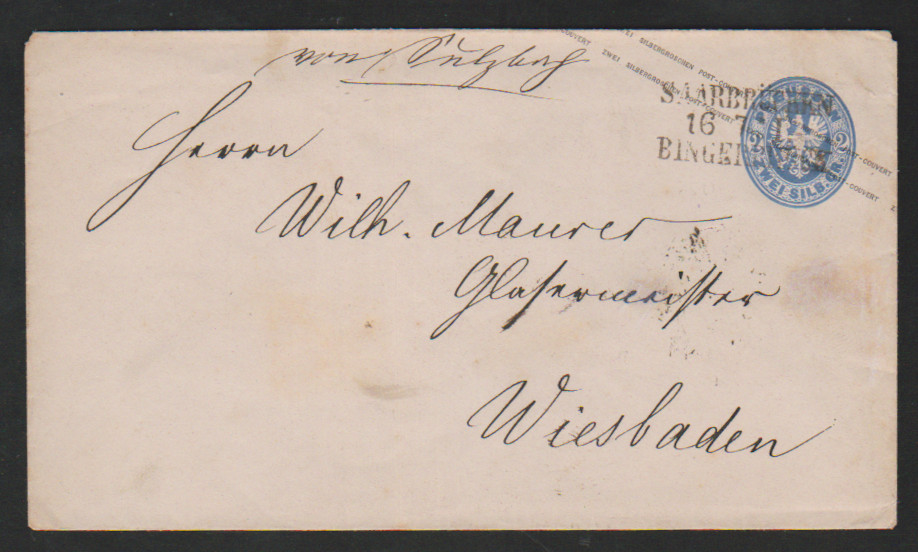 von Sulzbach
COUVERT ZWEI SILBERGROSCHEN POST-COUVERT
ZWEI SILBERGROSCHEN POST-COUVERT
SAARBRÜCKEN
16 7
BINGEN
PREUSSEN
2 2
ZWEI SILB. GR.
POST-COUVERT
COUVERT
Herrn
Wilh. Maurer
Glasermeister
Wiesbaden